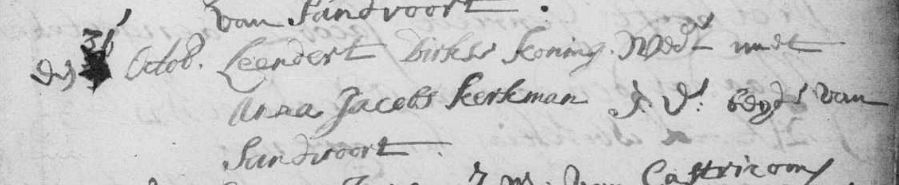 van Sandvoort.
den 31 Octob. Leendert Dirkse Koning. Wedr. met
Anna Jacobs Kerkman J. Dr. beyde van
Sandvoort.
J: M: van Castricom